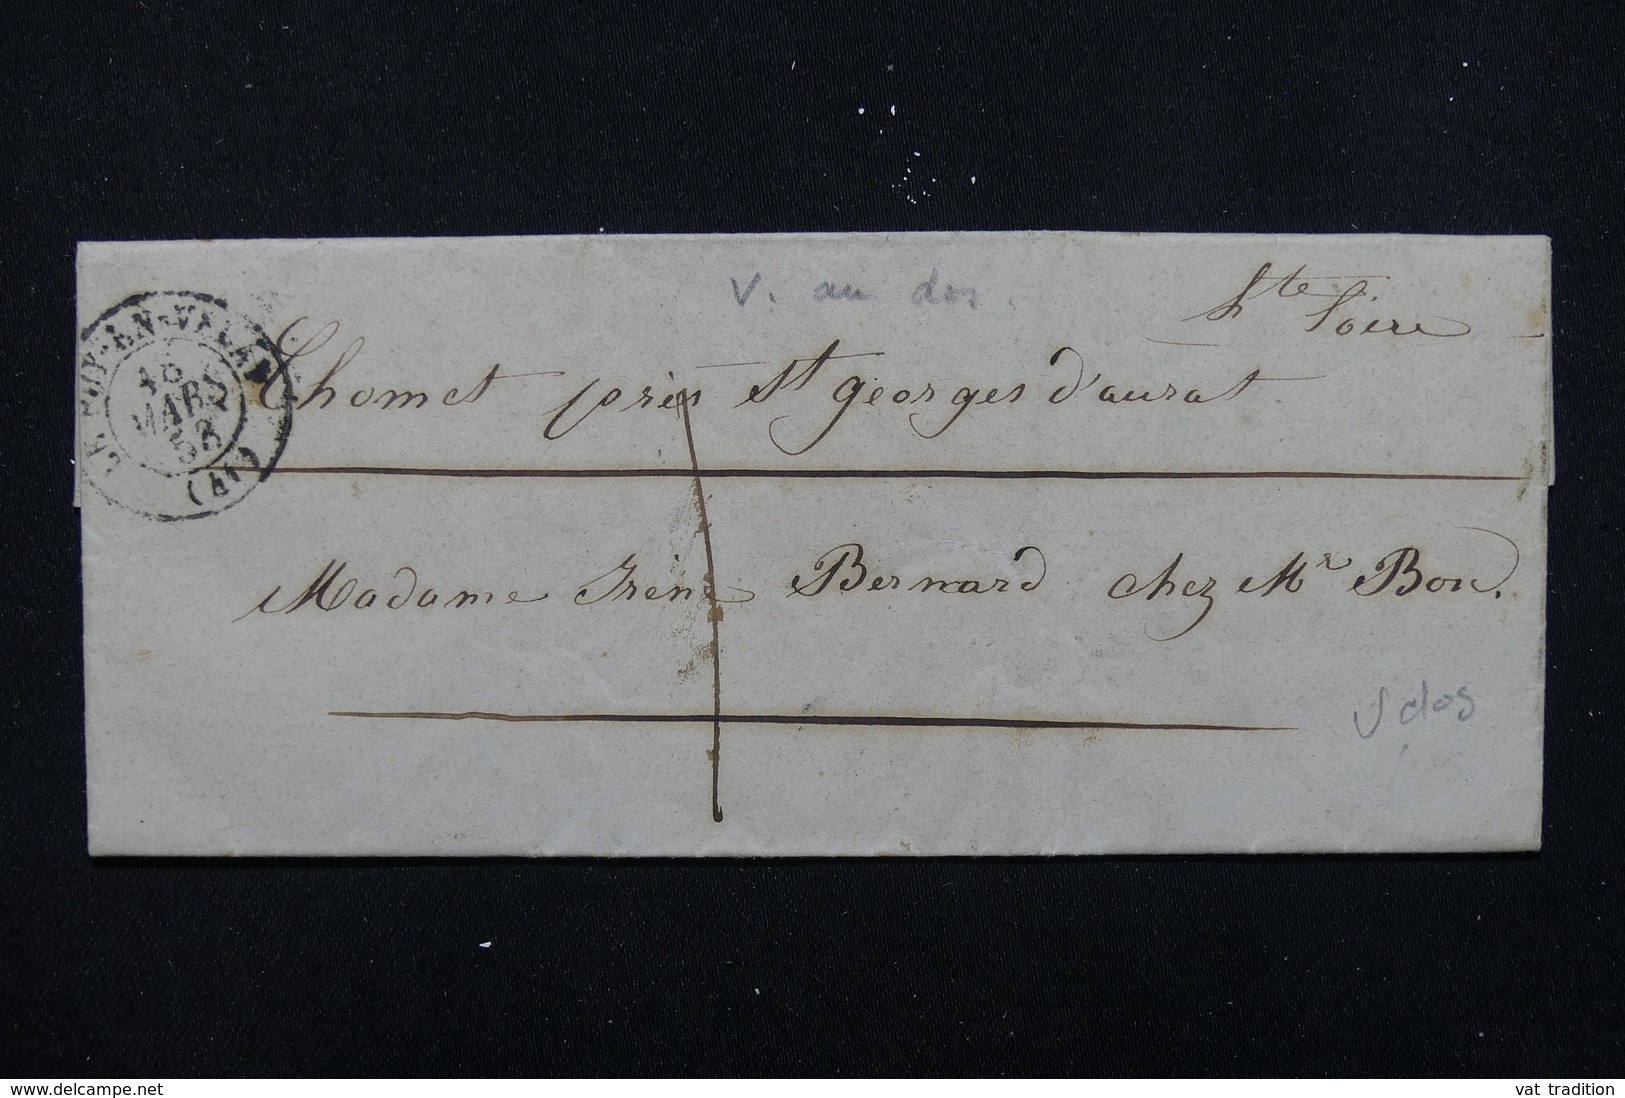 V. au dos.
hte loire
LE PUY-EN-VELAY
MARS
53
(41)
Thomet près St georges d'aurat
Madame Irene Bernard chez Mr Bon.
V dos
www.delcampe.net
vat tradition